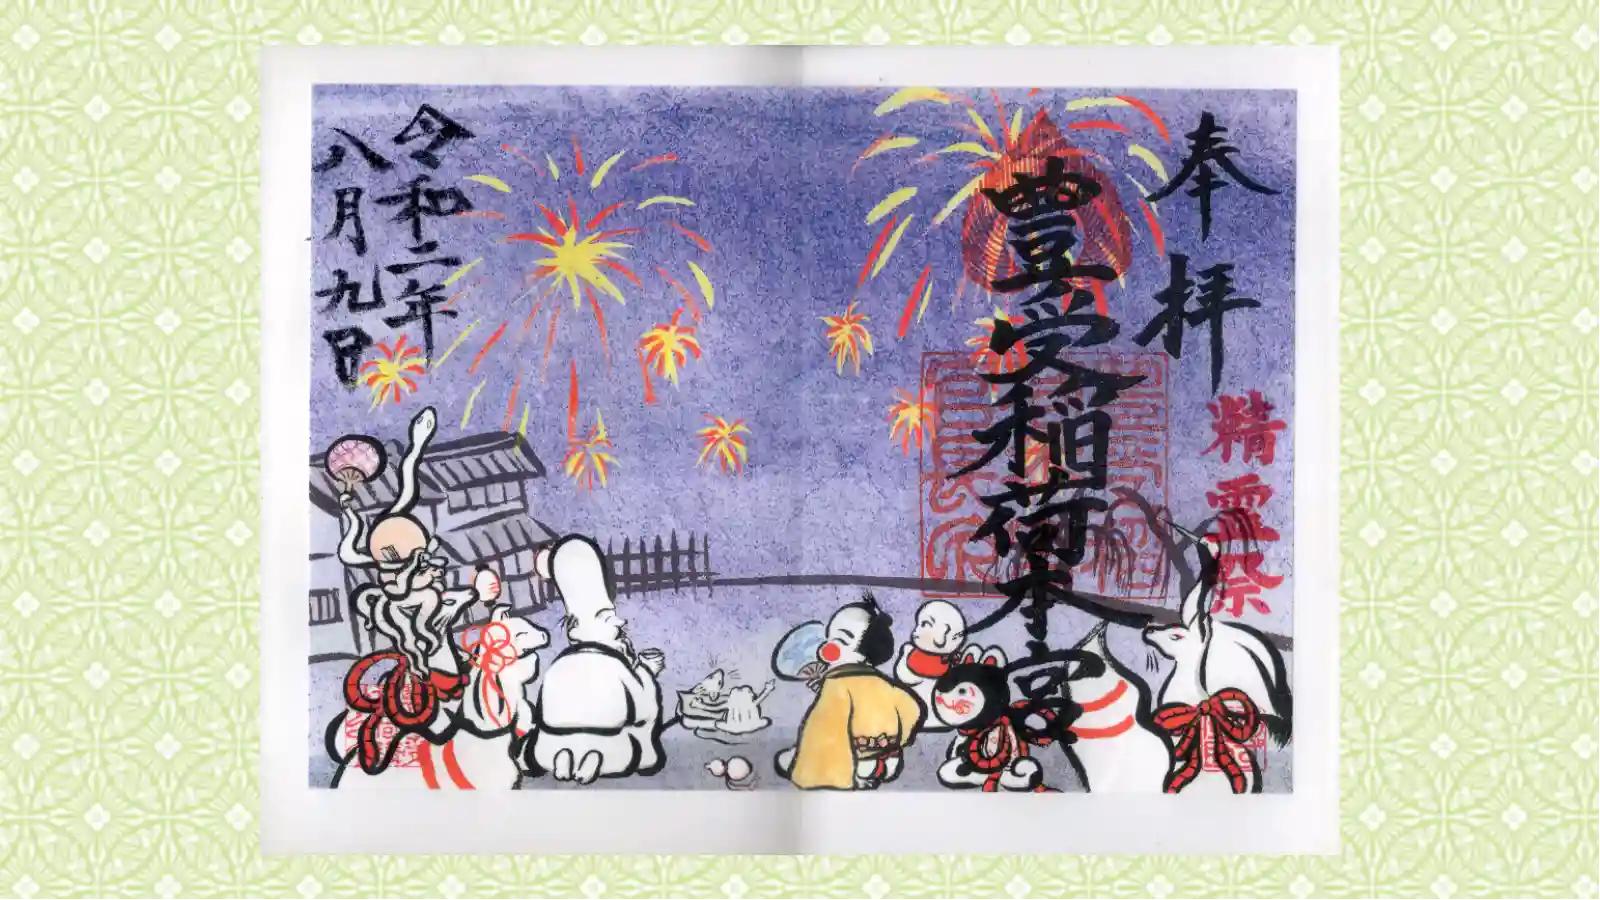 奉拝
精霊祭
豊受稲荷本宮
令和二年
八月九日